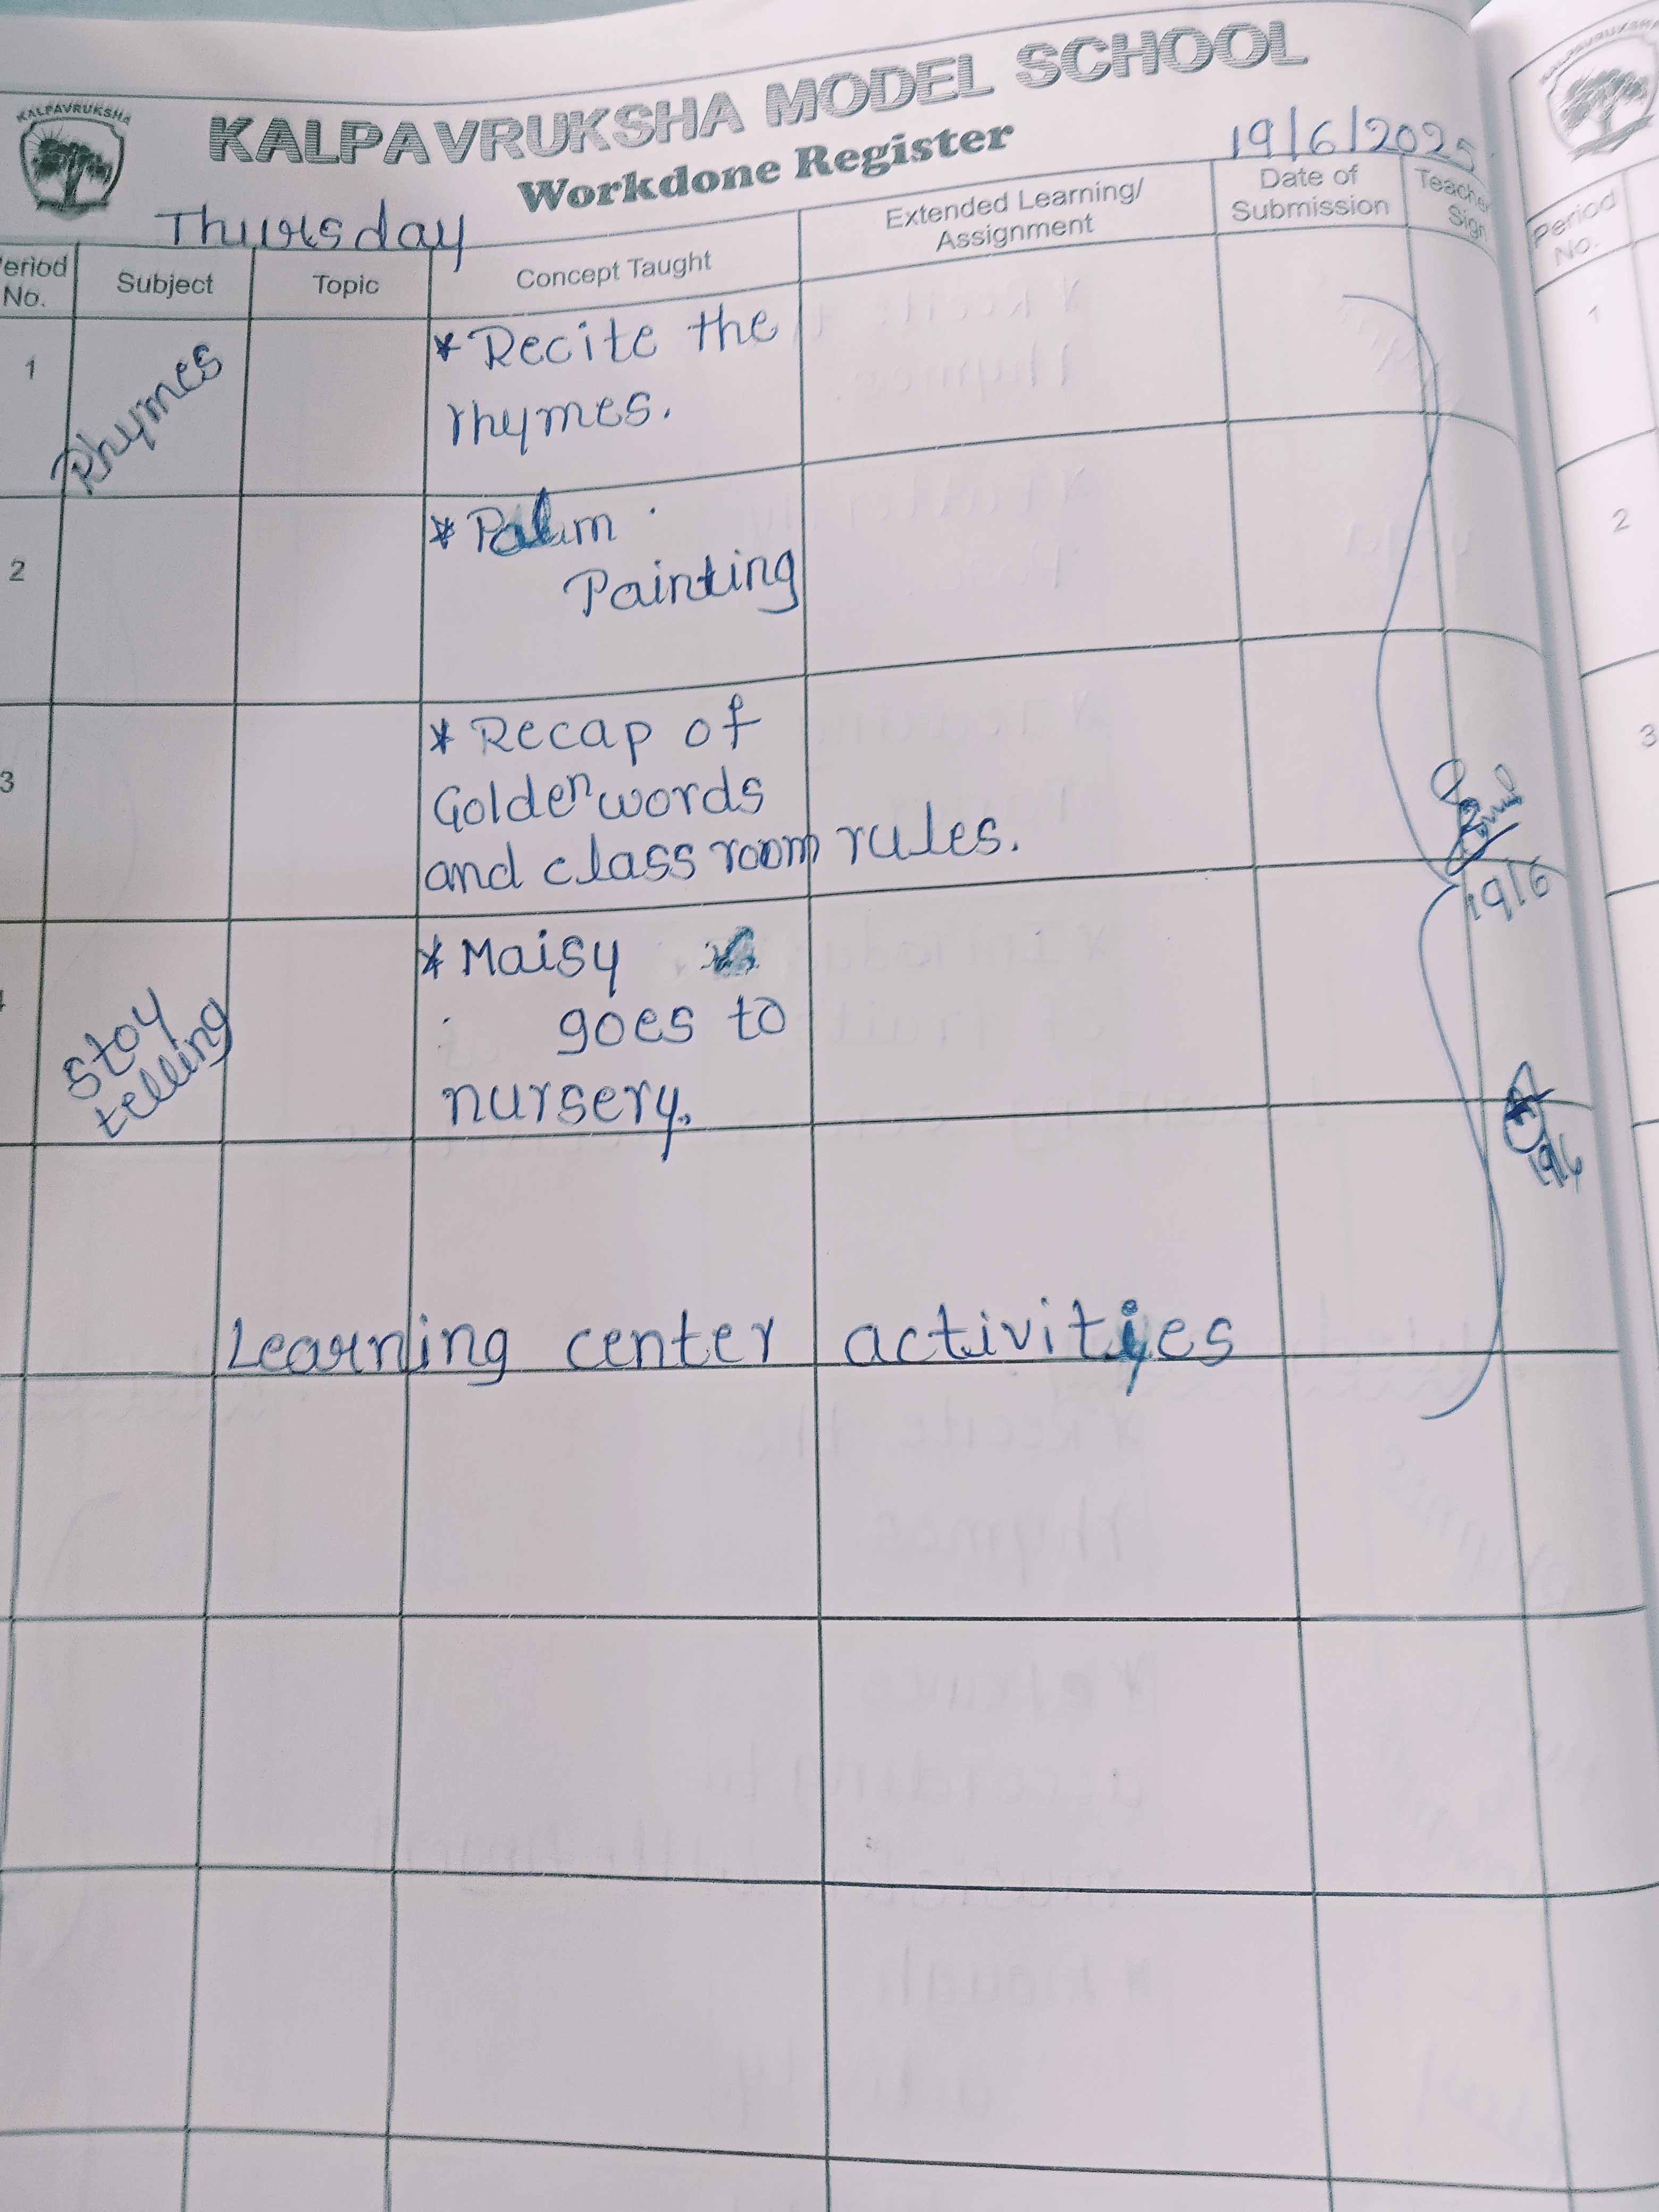 KALPAVRUKSHA
KALPAVRUKSHA MODEL SCHOOL
Workdone Register
19/6/2025
Thursday
Period No. Subject Topic Concept Taught Extended Learning/ Assignment Date of Submission Teacher Sign
1 Rhymes * Recite the
rhymes.
2 * Palm
Painting
3 * Recap of
Golden words
and class room rules.
* Maisy
Stoy
goes to
telling
nursery.
19/6
19/6
Learning center activities
KALPAVRUKSHA
Period
No.
1
2
3